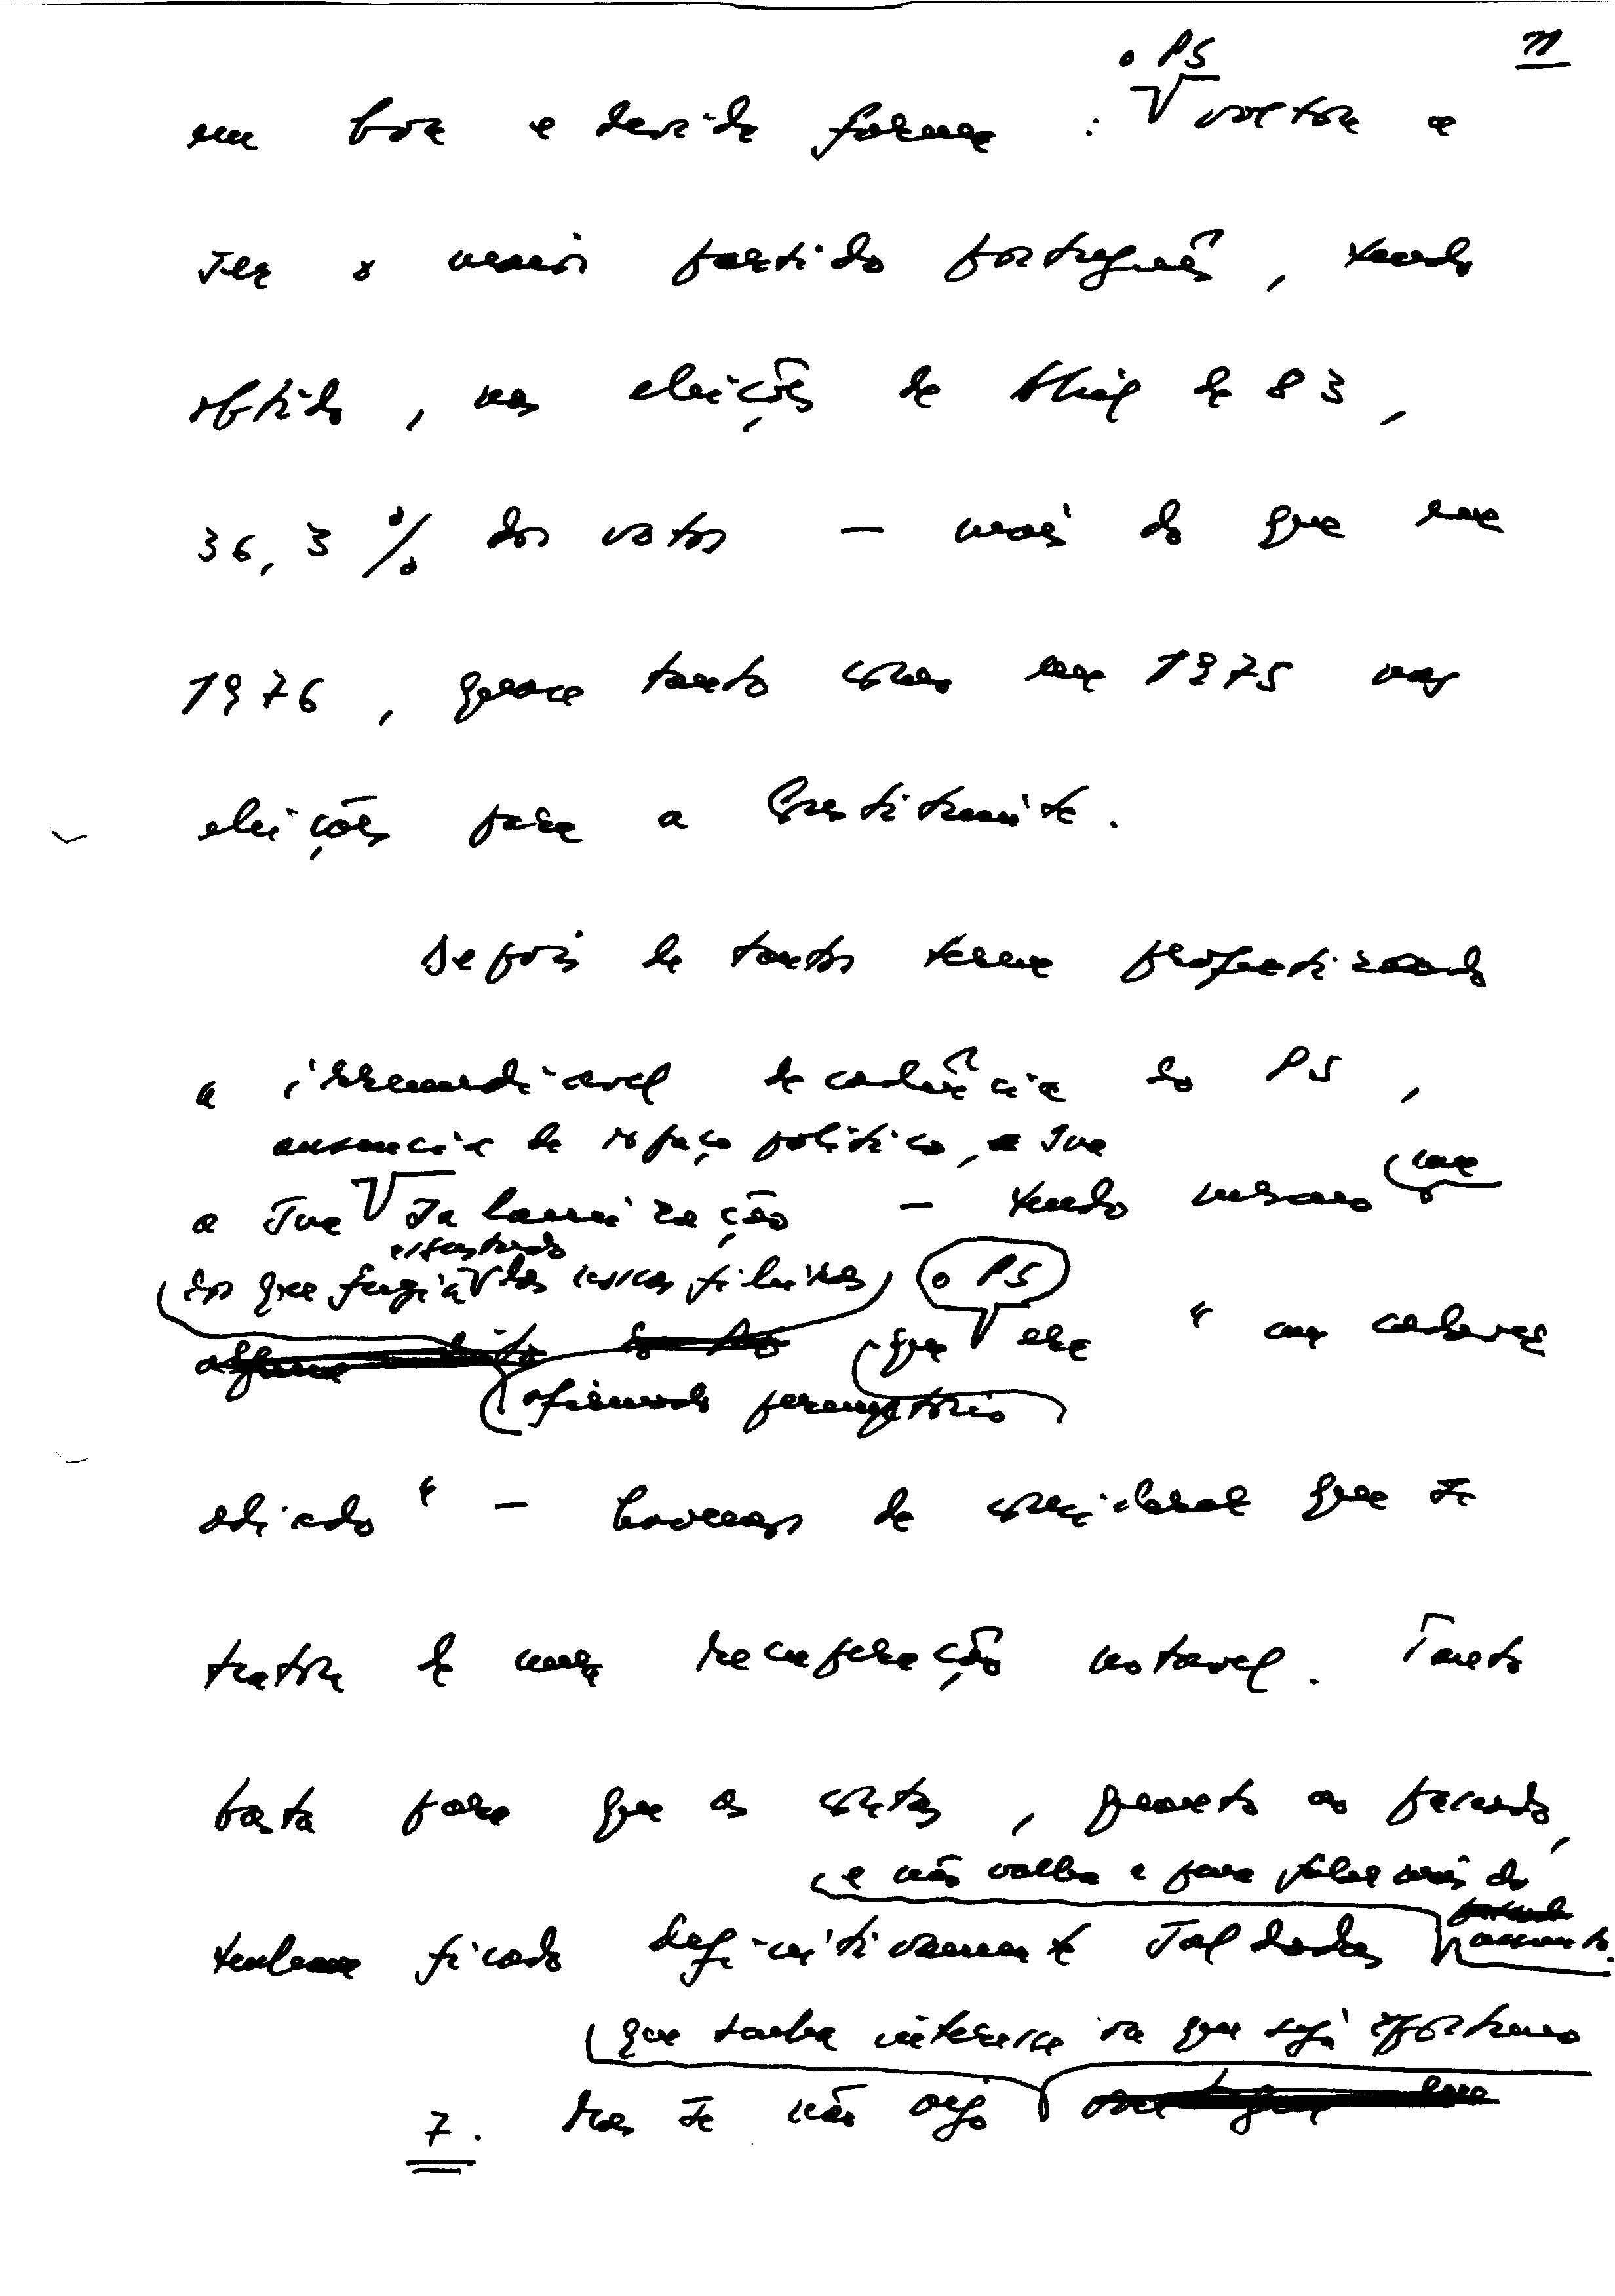 11
o PS
em boa e devida forma : voltou a
ser o maior partido português, tendo
obtido, nas eleições de Abril de 83,
36,3 % dos votos — mais do que em
1976, quase tanto como em 1975 nas
eleições para a Constituinte.
Depois de tantos terem profetizado
a irremediavel decadência do PS,
ausencia de espaço politico, a sua
a sua salamização — tendo mesmo um
dos que fugiu das nossas fileiras o PS
afirmado que era " um cadaver
adiado " — havemos de concordar que se
tratou de uma recuperação notavel. Tanto
basta para que as contas, quanto ao passado,
e não valha a pena falar mais do
tenham ficado definitivamente saldadas assunto.
que tenha interesse ou que seja oportuno
7. Mas se não vejo